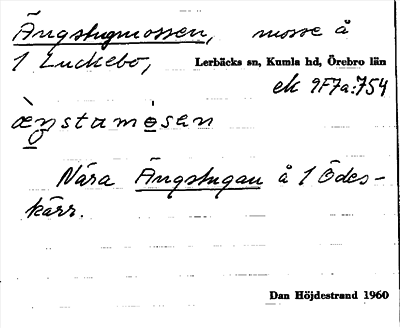 Ängstugmossen, mosse å
1 Luckebo, Lerbäcks sn, Kumla hd, Örebro län
ek 9F7a:754
æ̀ŋstamòsen
Nära Ängstugan å 1 Ödes-
kärr.
Dan Höjdestrand 1960